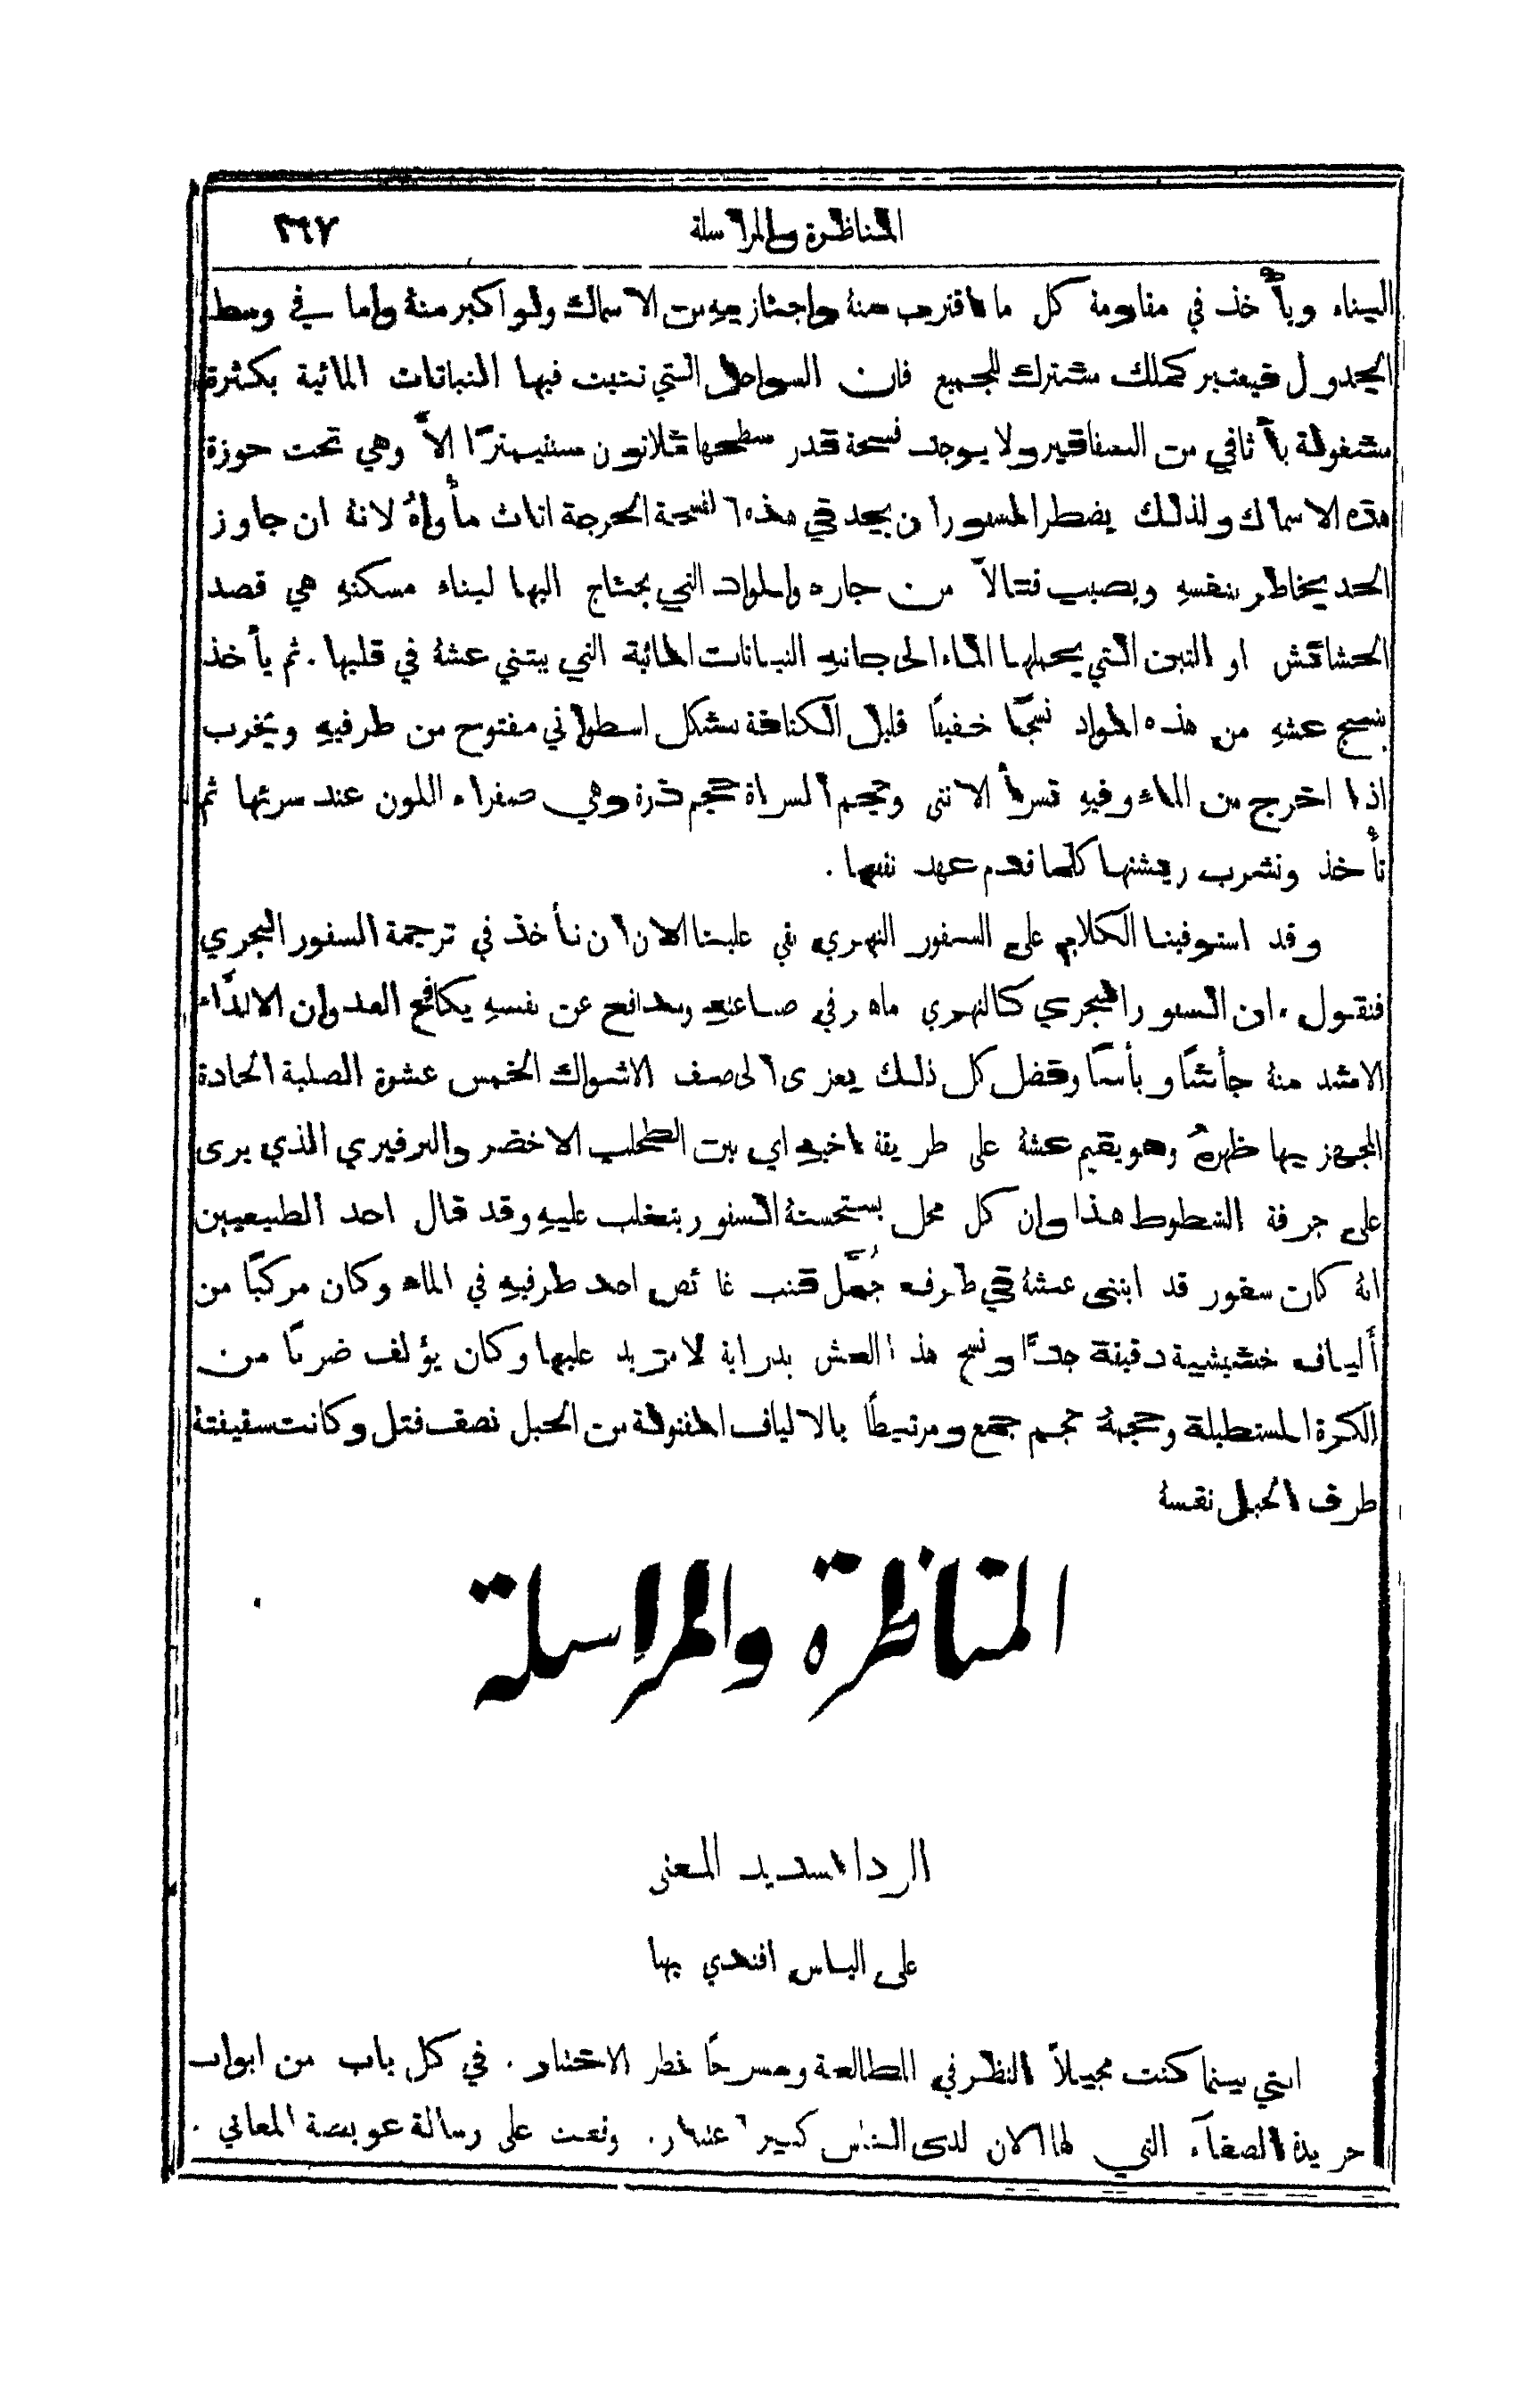 المناظرة والمراسلة ٣٦٧
البناء ويأخذ في مقاومة كل ما اقترب منهُ واجتاز بهِ من الاسماك ولو اكبر منهُ واما في وسط
الجدول فيعتبر كملك مشترك للجميع فان السواحل التي تنبت فيها النباتات المائية بكثرة
مشغولة بأثافي من السفافير ولا يوجد فسحة قدر سطحها ثلاثون سنتيمترًا الاَّ وهي تحت حوزة
هذه الاسماك ولذلك يضطر السفور ان يجد في هذه الفسحة الحرجة اناث مأواهُ لانهُ ان جاوز
الحد يخاطر بنفسهِ ويصيب قتالاً من جاره والمواد التي يحتاج اليها لبناء مسكنهِ هي قصد
الحشائش او التبن التي يحملها الماء الى جانبهِ النباتات المائية التي يبتني عشهُ في قلبها . ثم يأخذ
بنسج عشهِ من هذه المواد نسجًا خفيفًا قليل الكثافة بشكل اسطواني مفتوح من طرفيهِ ويخرب
اذا اخرج من الماء وفيهِ تسرأ الانثى وحجم السراة حجم ذرة وهي صفراء اللون عند سرئها ثم
تأخذ وتشرب ريشتها كلما قدم عهد نفسها .
وقد استوفينا الكلام على السفور النهري بقي علينا الان ان نأخذ في ترجمة السفور البحري
فنقول . ان السفور البحري كالنهري ماهر في صناعتهِ ومدافع عن نفسهِ يكافح العدوان الالدَّاء
الاشد منهُ جأشًا وبأسًا وفضل كل ذلك يعزى الى صف الاشواك الخمس عشرة الصلبة الحادة
المجهز بها ظهرهُ وهو يقيم عشهُ على طريقة اخيهِ اي بين الطحلب الاخضر والبرفيري الذي يرى
على جرفة الشطوط هذا وان كل محل يستحسنهُ السفور يتغلب عليهِ وقد قال احد الطبيعيين
انهُ كان سفور قد ابتنى عشهُ في طرف جُمَّل قنب غائص احد طرفيهِ في الماء وكان مركبًا من
ألياف خشيشية دقيقة جدًّا ونسج هذا العش بدراية لا مزيد عليها وكان يؤلف ضربًا من
الكرة المستطيلة وحجمهُ حجم جمع ومرتبطًا بالالياف المفتولة من الحبل نصف فتل وكانت سقيفتهُ
طرف الحبل نفسهُ
المناظرة والمراسلة
الرد السديد المعنى
على الياس افندي بها
انني بينما كنت مجيلاً النظر في المطالعة ومسرحًا خطر الاختبار . في كل باب من ابواب
جريدة الصفآء التي لها الان لدى الناس كبير اعتبار . وقعت على رسالة عويصة المعاني .